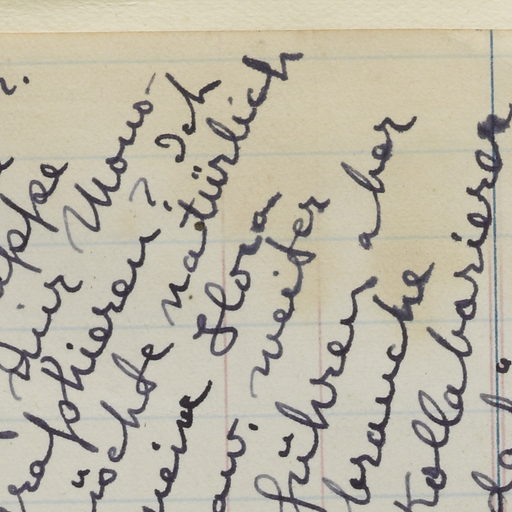 appe
Dir Mono-
raphieren? Ich
möchte natürlich
meine Flora
aw. weiter
führen, aber
brauche
Kollaborieren